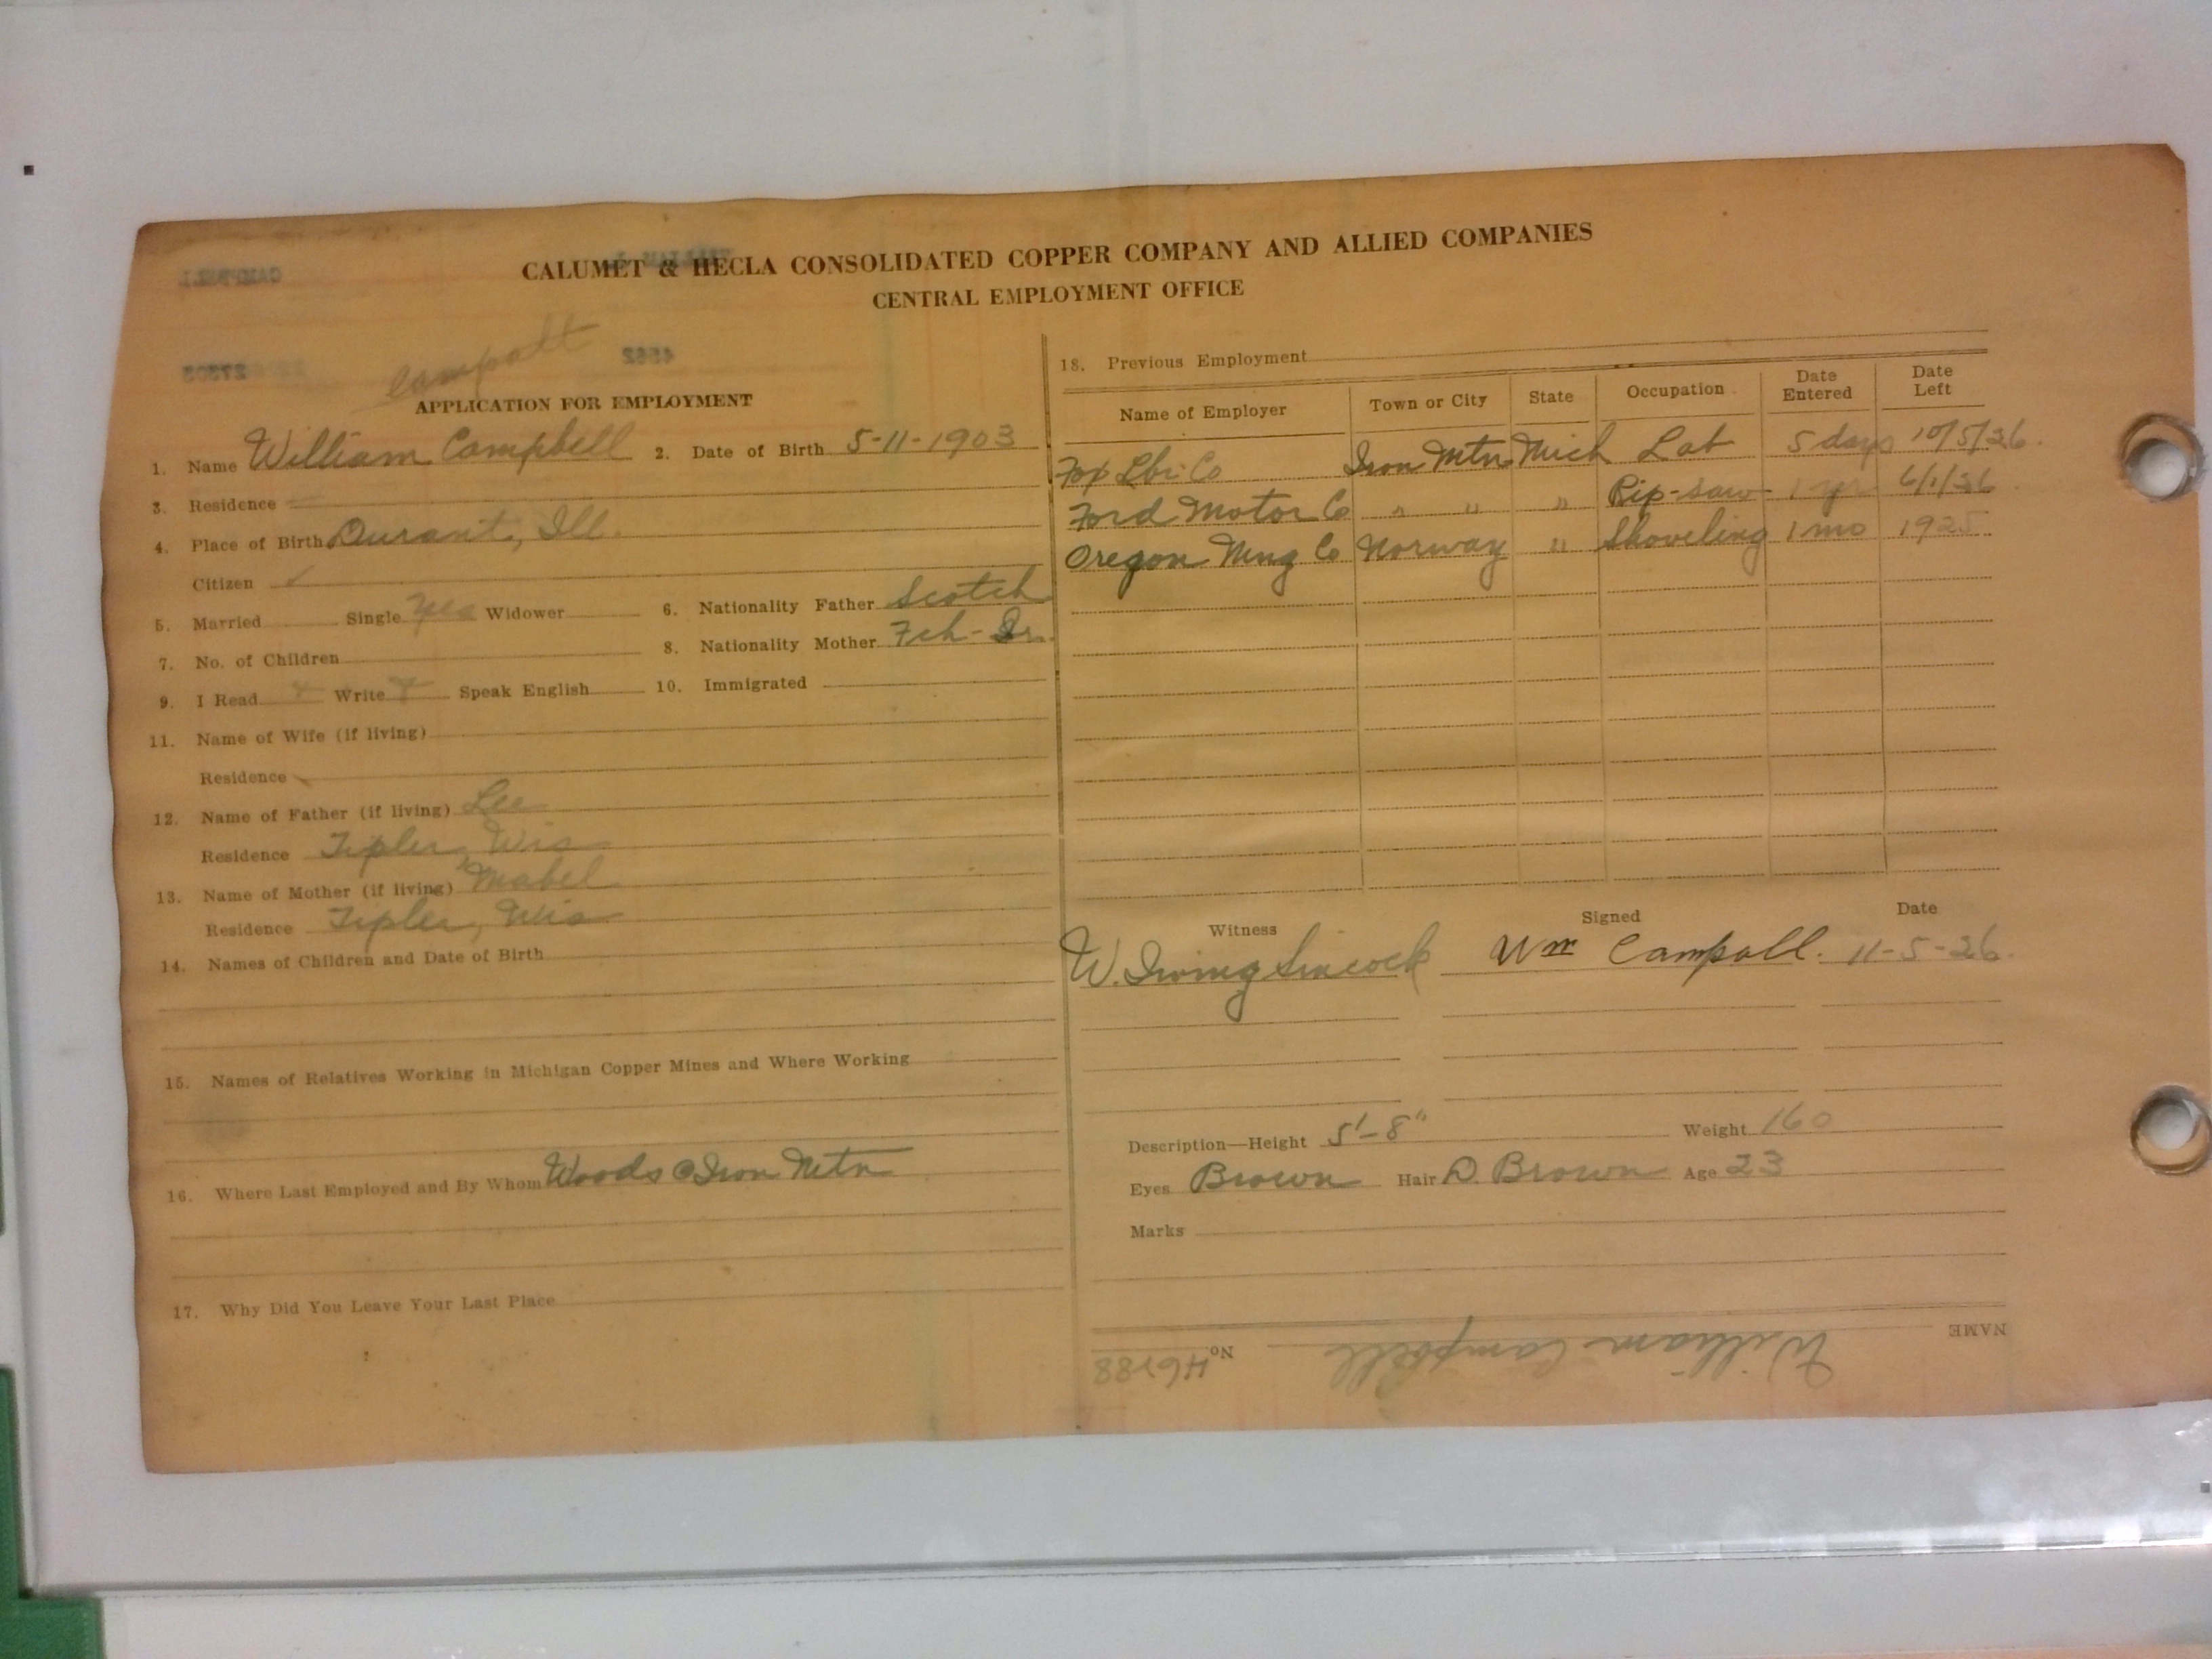 CALUMET & HECLA CONSOLIDATED COPPER COMPANY AND ALLIED COMPANIES
CENTRAL EMPLOYMENT OFFICE
CAMPBELL
4562
27303
Campoll
APPLICATION FOR EMPLOYMENT
1. Name William Campbell 2. Date of Birth 5-11-1903
3. Residence
4. Place of Birth Durant, Ill.
Citizen ✓
5. Married Single Yes Widower 6. Nationality Father Scotch
7. No. of Children 8. Nationality Mother Fch-Ir.
9. I Read Write Speak English 10. Immigrated
11. Name of Wife (if living)
Residence
12. Name of Father (if living) Lee
Residence Tipler, Wis
13. Name of Mother (if living) Mabel
Residence Tipler, Wis
14. Names of Children and Date of Birth
15. Names of Relatives Working in Michigan Copper Mines and Where Working
16. Where Last Employed and By Whom Woods @ Iron Mtn
17. Why Did You Leave Your Last Place
18. Previous Employment
Name of Employer Town or City State Occupation Date Entered Date Left
Fox Lbr. Co Iron Mtn Mich Lab 5 days 10/5/26.
Ford Motor Co " " " Rip-saw 1 yr 6/1/26.
Oregon Mng Co Norway " Shoveling 1 mo 1925
Witness Signed Date
W. Irving Sincock Wm Campoll. 11-5-26.
Description—Height 5'-8" Weight 160
Eyes Brown Hair D. Brown Age 23
Marks
NAME William Campbell No. 46788